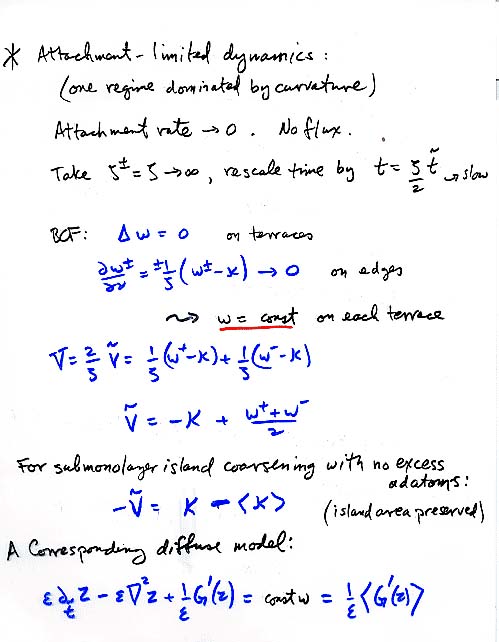 * Attachment-limited dynamics:
(one regime dominated by curvature)
Attachment rate → 0. No flux.
Take ζ± = ζ → ∞, rescale time by t = ζ/2 t̃ → slow
BCF: Δw = 0 on terraces
∂w±/∂ν = ±1/ζ (w± - κ) → 0 on edges
⤳ w = const on each terrace
V = 2/ζ Ṽ = 1/ζ (w⁺ - κ) + 1/ζ (w⁻ - κ)
Ṽ = -κ + (w⁺ + w⁻)/2
For submonolayer island coarsening with no excess
adatoms:
-Ṽ = κ - <κ> (island area preserved)
A Corresponding diffuse model:
ε ∂_t z - ε∇²z + 1/ε G'(z) = const w = 1/ε <G'(z)>